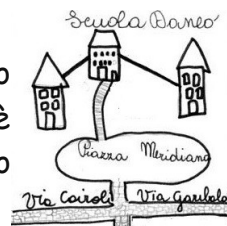 Scuola Daneo
o
è
Piazza Meridiana
o
Via Cairoli Via Garibald